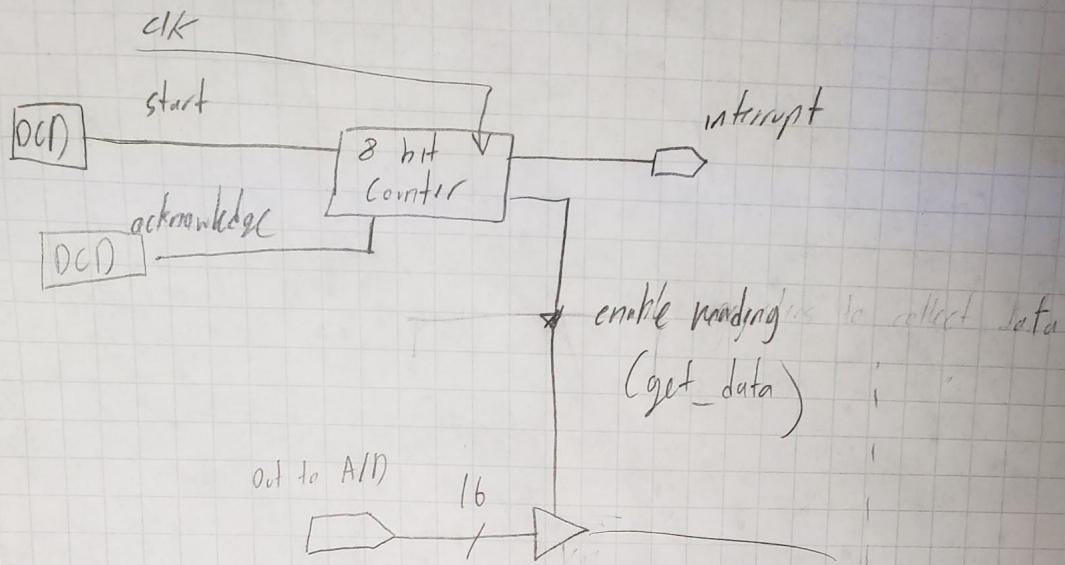 clk
start
DCD
8 bit
Counter
interrupt
acknowledge
DCD
enable reading
to collect data
(get_data)
Out to A/D
16